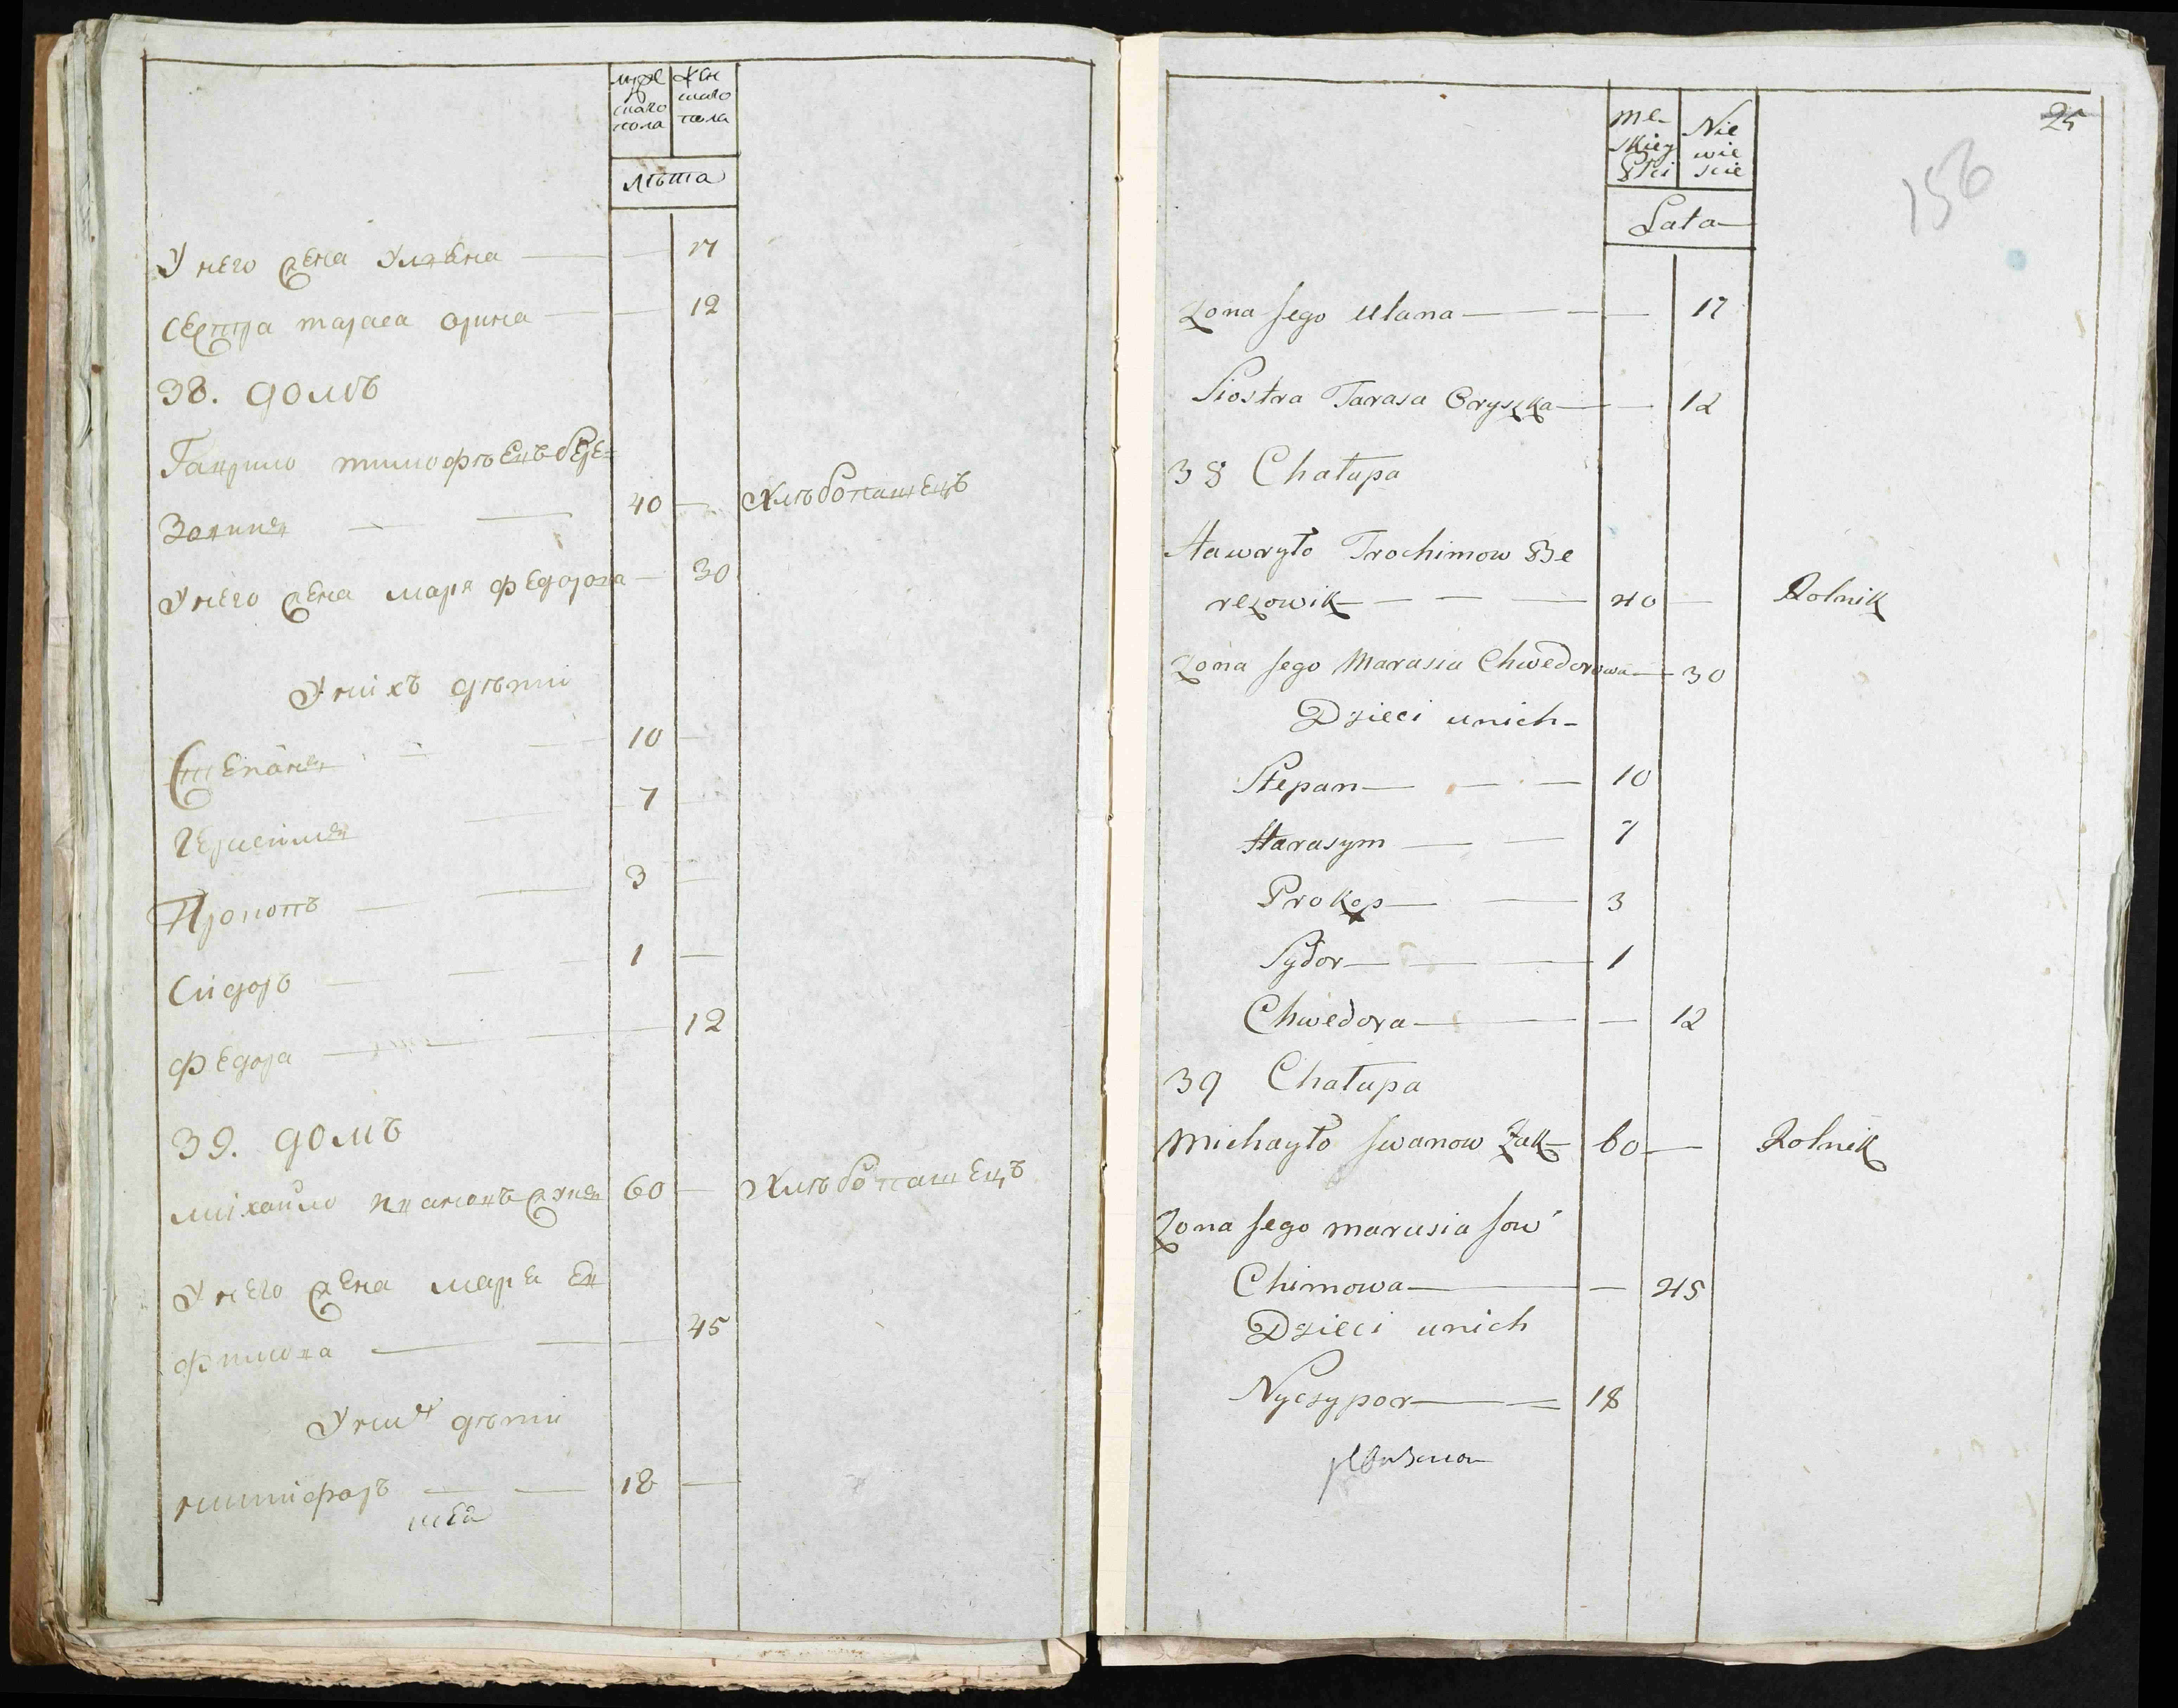 муже
ска́го
пола
жен
скаго
пола
лѣта
У него жена Ульяна — — 17
сестра тараса орина — — 12
38. домъ
Гаврило тимофѣевъ бере=
зовик — — 40 — хлѣбопашецъ
У него жена маря федорова — 30
У нихъ дѣти
Степанъ — — 10 —
Герасимъ — 7 —
Прокопъ — — 3 —
Сидоръ — — — 1 —
Федора — — — 12
39. домъ
михайло ивановъ жукъ 60 — хлѣбопашецъ
У него жена марея ев
фимова — — — 45
У них дѣти
никифоръ — — 18 —
25
156
me-
skiey
Płci
Nie
wie
scie
Lata
Zona Jego Ulana — — — — 17
Siostra Tarasa Oryszka — — 12
38 Chałupa
Hawryło Trochimow Be
rezowik — — — — 40 — Rolnik
Zona Jego Marusia Chwedorowa — 30
Dzieci unich –
Stepan — — — 10
Harasym — — 7
Prokop — — 3
Sydor — — — 1
Chwedora — — — 12
39 Chałupa
Michayło Jwanow Zuk — 60 — Rolnik
Zona Jego marusia Jow
Chimowa — — 45
Dzieci unich
Nycsypor — = 18